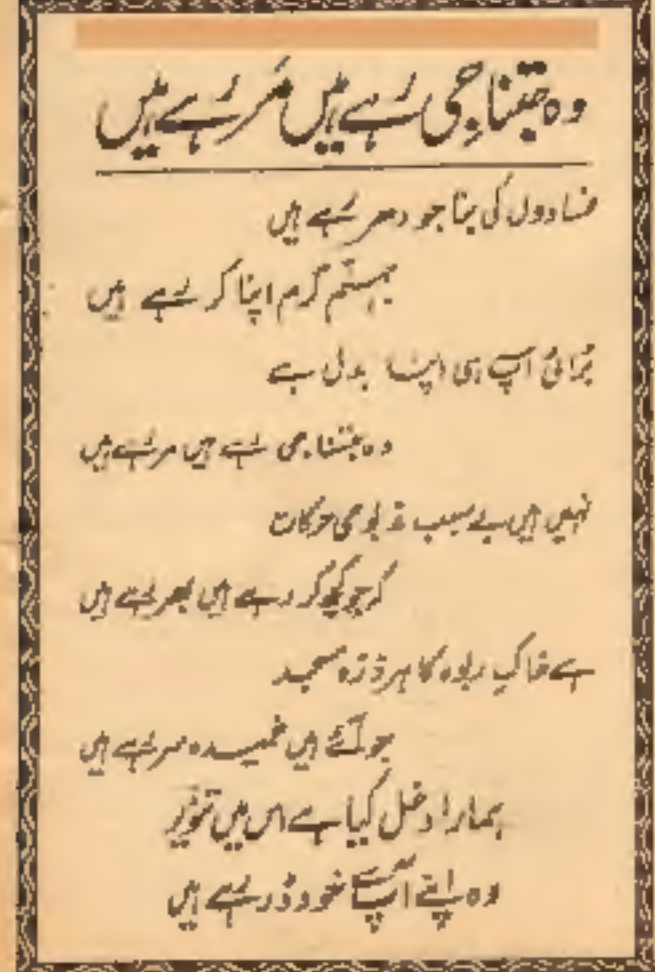 وہ جتنا جی رہے ہیں مر رہے ہیں
فسادوں کی بنا جو دھر رہے ہیں
ہم ستم کرم اپنا کر رہے ہیں
برائی آپ ہی اپنا بدل ہے
وہ جتنا جی رہے ہیں مر رہے ہیں
نہیں ہیں بے سبب حرکات
کہ جو کچھ کر رہے ہیں بھر رہے ہیں
ہے خاکِ ربوہ کا ہر ذرہ مسجد
جو آئے ہیں خمیدہ سر رہے ہیں
ہمارا دخل کیا ہے اس میں تنویر
وہ اپنے آپ سے خود ڈر رہے ہیں